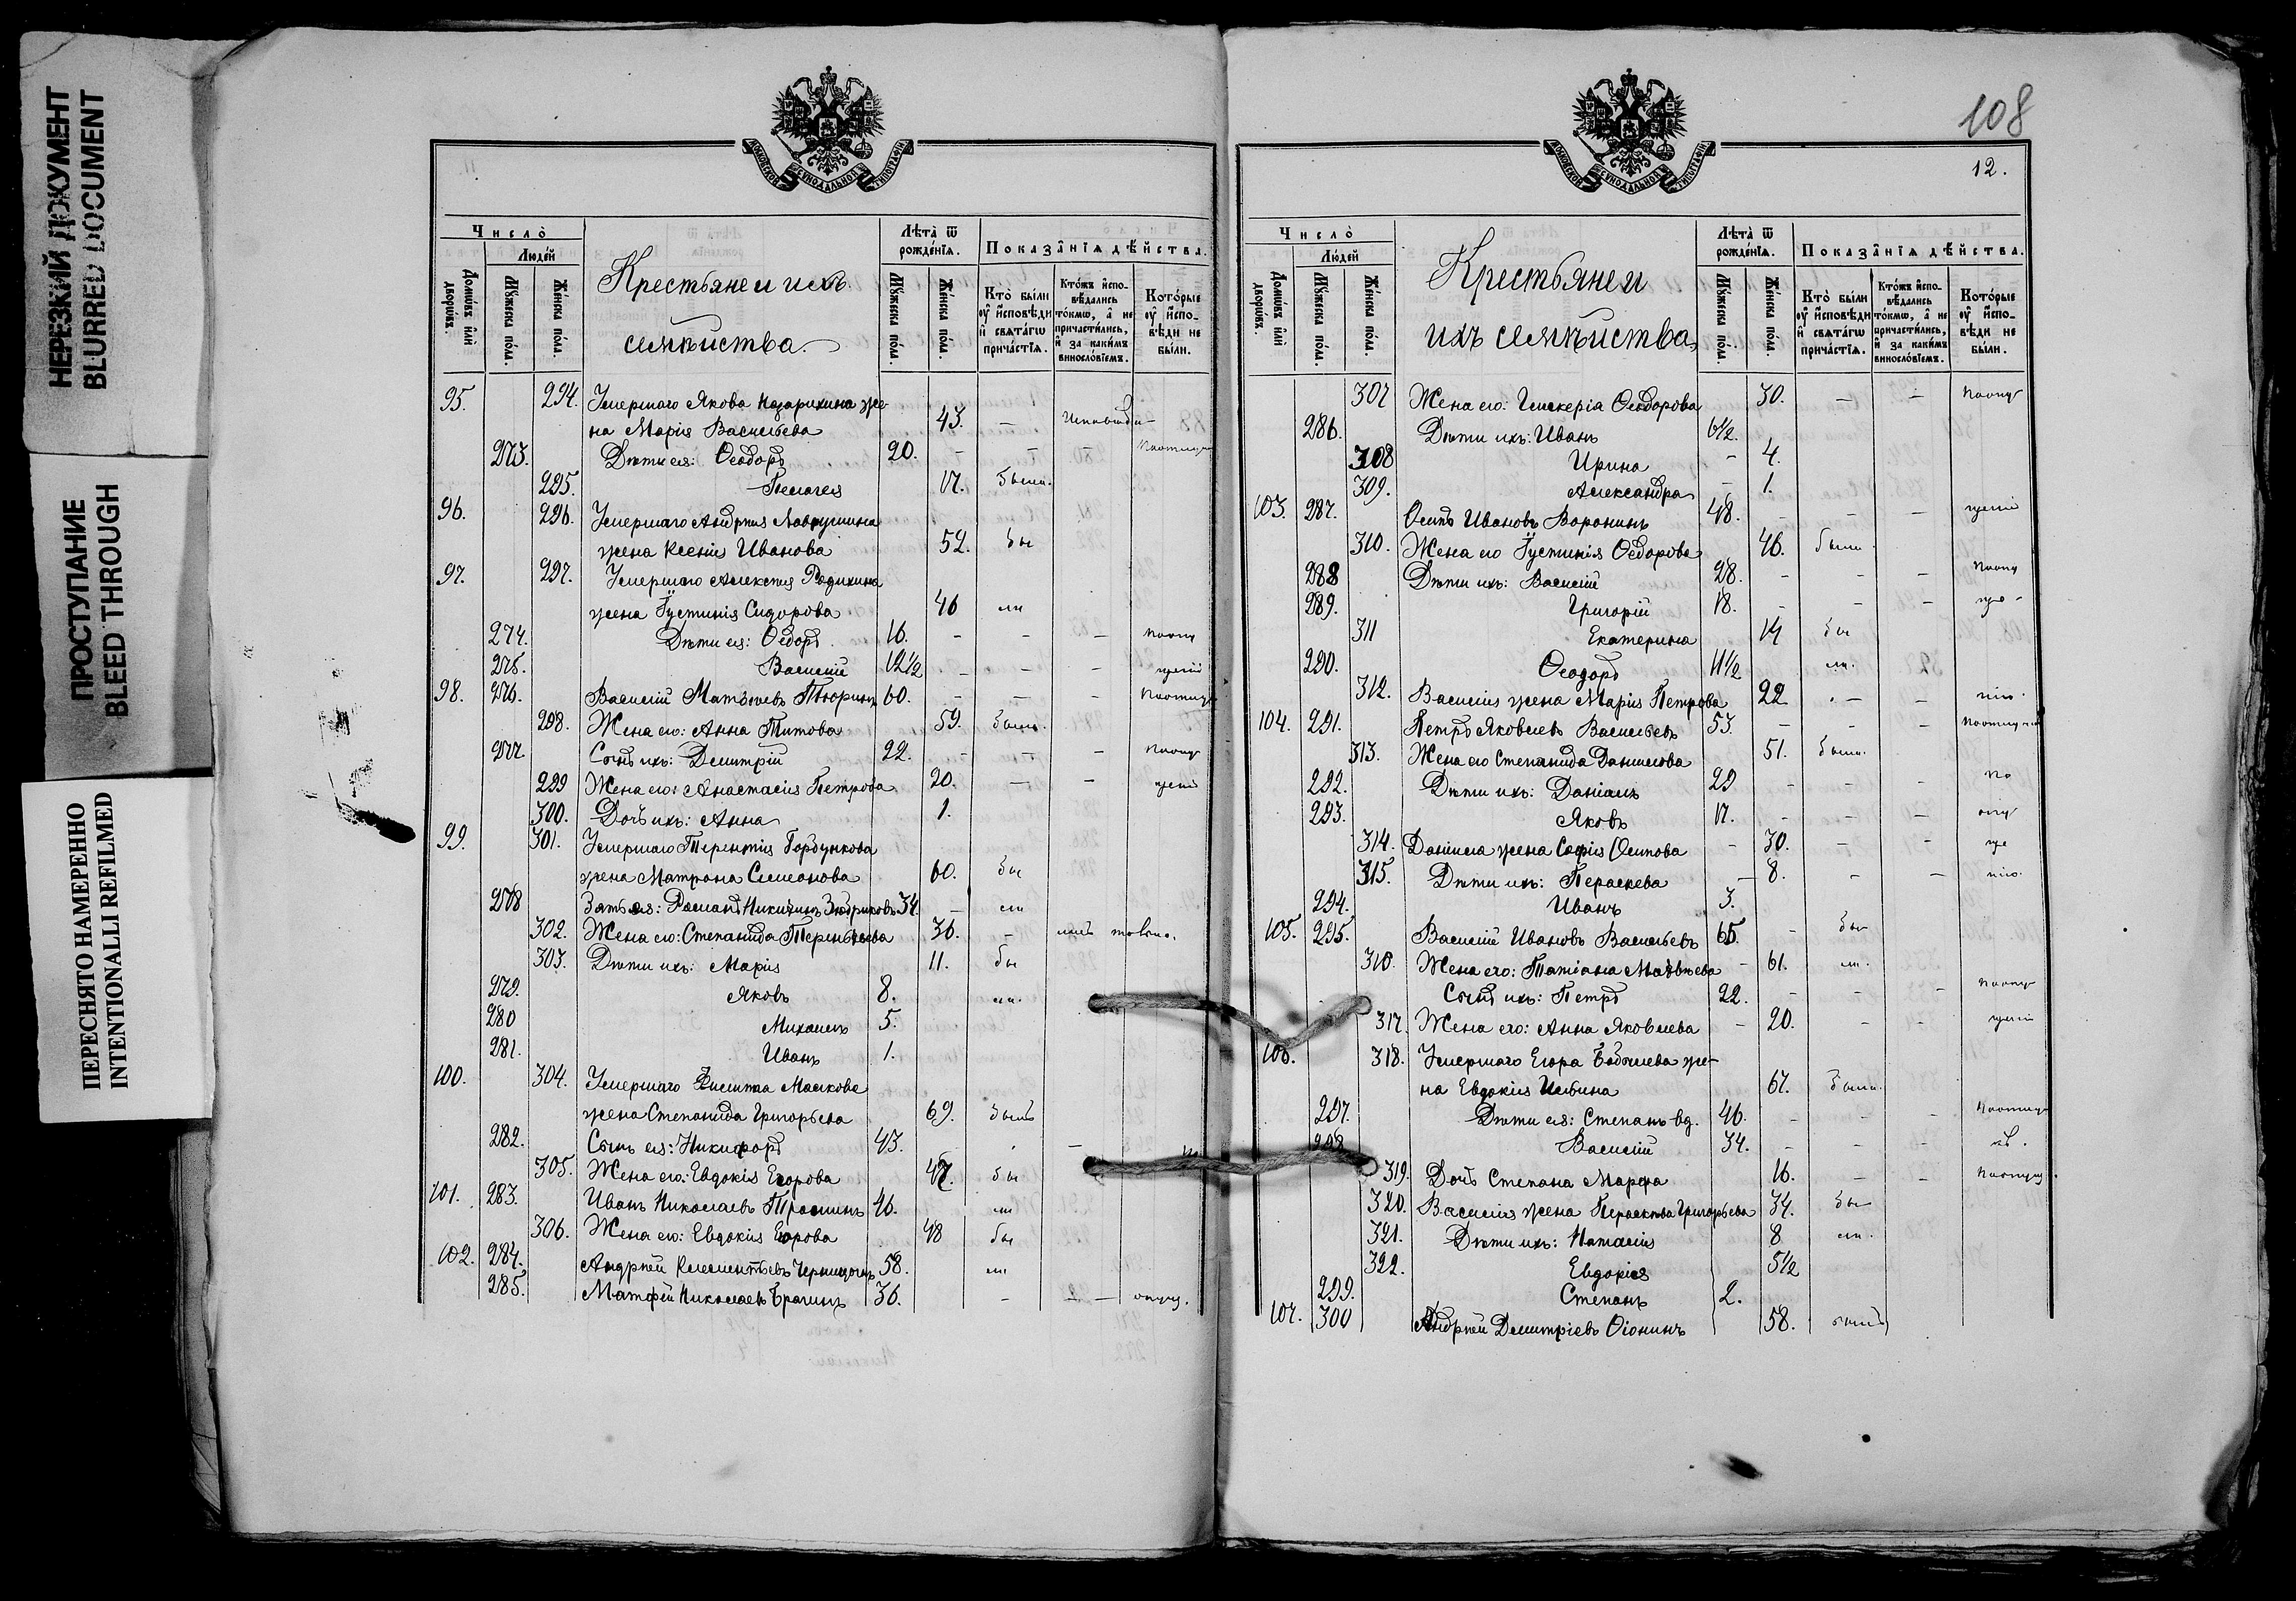 НЕРЕЗКИЙ ДОКУМЕНТ
BLURRED DOCUMENT
ПРОСТУПАНИЕ
BLEED THROUGH
ПЕРЕСНЯТО НАМЕРЕННО
INTENTIONALLI REFILMED
МОСКОВСКОЙ СѴНОДАЛЬНОЙ ТИПОГРАФІИ
Число̀
Людей
Домѡвъ или дворѡвъ.
Мꙋжеска пола.
Женска пола.
Крестьяне и ихъ
семѣйства.
Лѣта̀ ѿ рожденїѧ.
Мꙋжеска пола.
Женска пола.
Показанїѧ дѣйства.
Кто̀ были ᲂу҆ исповѣди и свѧтагѡ причастїѧ.
Кто́жъ исповѣдались то́кмѡ, а не причастились, и за какимъ винословїемъ.
Которые ᲂу҆ исповѣди не были.
95. 294. Умершаго Якова Назарихина же-
на Марія Васильева 43. — Исповѣди —
273. Дѣти ея: Ѳеодоръ 20. — — —
295. Пелагея 17. были.
96. 296. Умершаго Андрея Лаврушина
жена Ксенія Иванова 52. бы
97. 297. Умершаго Алексея Родихина
жена Іустинія Сидорова 46 ли
274. Дѣти ея: Ѳедоръ 16. — — —
275. Василій 12½ — — —
98. 276. Василій Матѳеевъ Тюринъ 60. — — —
298. Жена его: Анна Титова 59. были.
277 Сынъ ихъ: Димитрій 22. — — —
299 Жена его: Анастасія Петрова 20. — —
300. Дочь ихъ: Анна 1.
99. 301. Умершаго Терентія Горбункова
жена Матрона Симеонова 60. бы
278 Зять ея: Романъ Никитинъ 34. — ли
302. Жена его: Степанида Терентьева 36. —
303. Дѣти ихъ: Марія 11. бы
279. Яковъ 8. ли.
280 Михаилъ 5.
281. Иванъ 1.
100. 304. Умершаго Филиппа Маркова
жена Степанида Григорьева 69. былъ
282. Сынъ ея: Никифоръ 43. — —
305. Жена его: Евдокія Егорова 47. бы
101. 283. Иванъ Николаевъ 46. ли
306. Жена его: Евдокія Егорова 48 бы
102. 284. Андрей Клементьевъ 58. ли
285. Матфей Николаевъ Брагинъ 36. — — —
108
12.
МОСКОВСКОЙ СѴНОДАЛЬНОЙ ТИПОГРАФІИ
Число̀
Людей
Домѡвъ или дворѡвъ.
Мꙋжеска пола.
Женска пола.
Крестьяне и
ихъ семѣйства.
Лѣта̀ ѿ рожденїѧ.
Мꙋжеска пола.
Женска пола.
Показанїѧ дѣйства.
Кто̀ были ᲂу҆ исповѣди и свѧтагѡ причастїѧ.
Кто́жъ исповѣдались то́кмѡ, а не причастились, и за какимъ винословїемъ.
Которые ᲂу҆ исповѣди не были.
307 Жена его: Гликерія Ѳеодорова 30. — —
286. Дѣти ихъ: Иванъ 6½.
308 Ирина — 4.
309. Александра — 1.
103. 287. Осипъ Ивановъ Воронинъ 48. — — —
310. Жена его Іустинія Ѳедорова 46. были.
288 Дѣти ихъ: Василій 28. — — —
289. Григорій 18. — — —
311 Екатерина 14 бы
290. Ѳеодоръ 11½ ли.
312. Василія жена Марія Петрова 22 — —
104. 291. Петръ Яковлевъ Васильевъ 53. — — —
313. Жена его Степанида Данилова 51. были.
292. Дѣти ихъ: Даніилъ 29 — — —
293. Яковъ 17. — — —
314. Даніила жена Софія Осипова — 30. — —
315. Дѣти ихъ: Параскева — 8. — —
294. Иванъ 3.
105. 295. Василій Ивановъ Васильевъ 65. — бы
316. Жена его: Татіана Матвѣева — 61. ли.
Сынъ ихъ: Петръ 22. — — —
317. Жена его: Анна Яковлева — 20. — —
106. 318. Умершаго Егора же-
на Евдокія Ильина 67. были.
297. Дѣти ея: Степанъ вд. 46. — — —
298 Василій 34. — — —
319. Дочь Степана Марфа 16. — —
320. Василія жена Параскева Григорьева 34. бы
321. Дѣти ихъ: Наталія 8 ли.
322. Евдокія 5½
299. Степанъ 2.
107. 300 Андрей Димитріевъ Ѳіонинъ 58. былъ